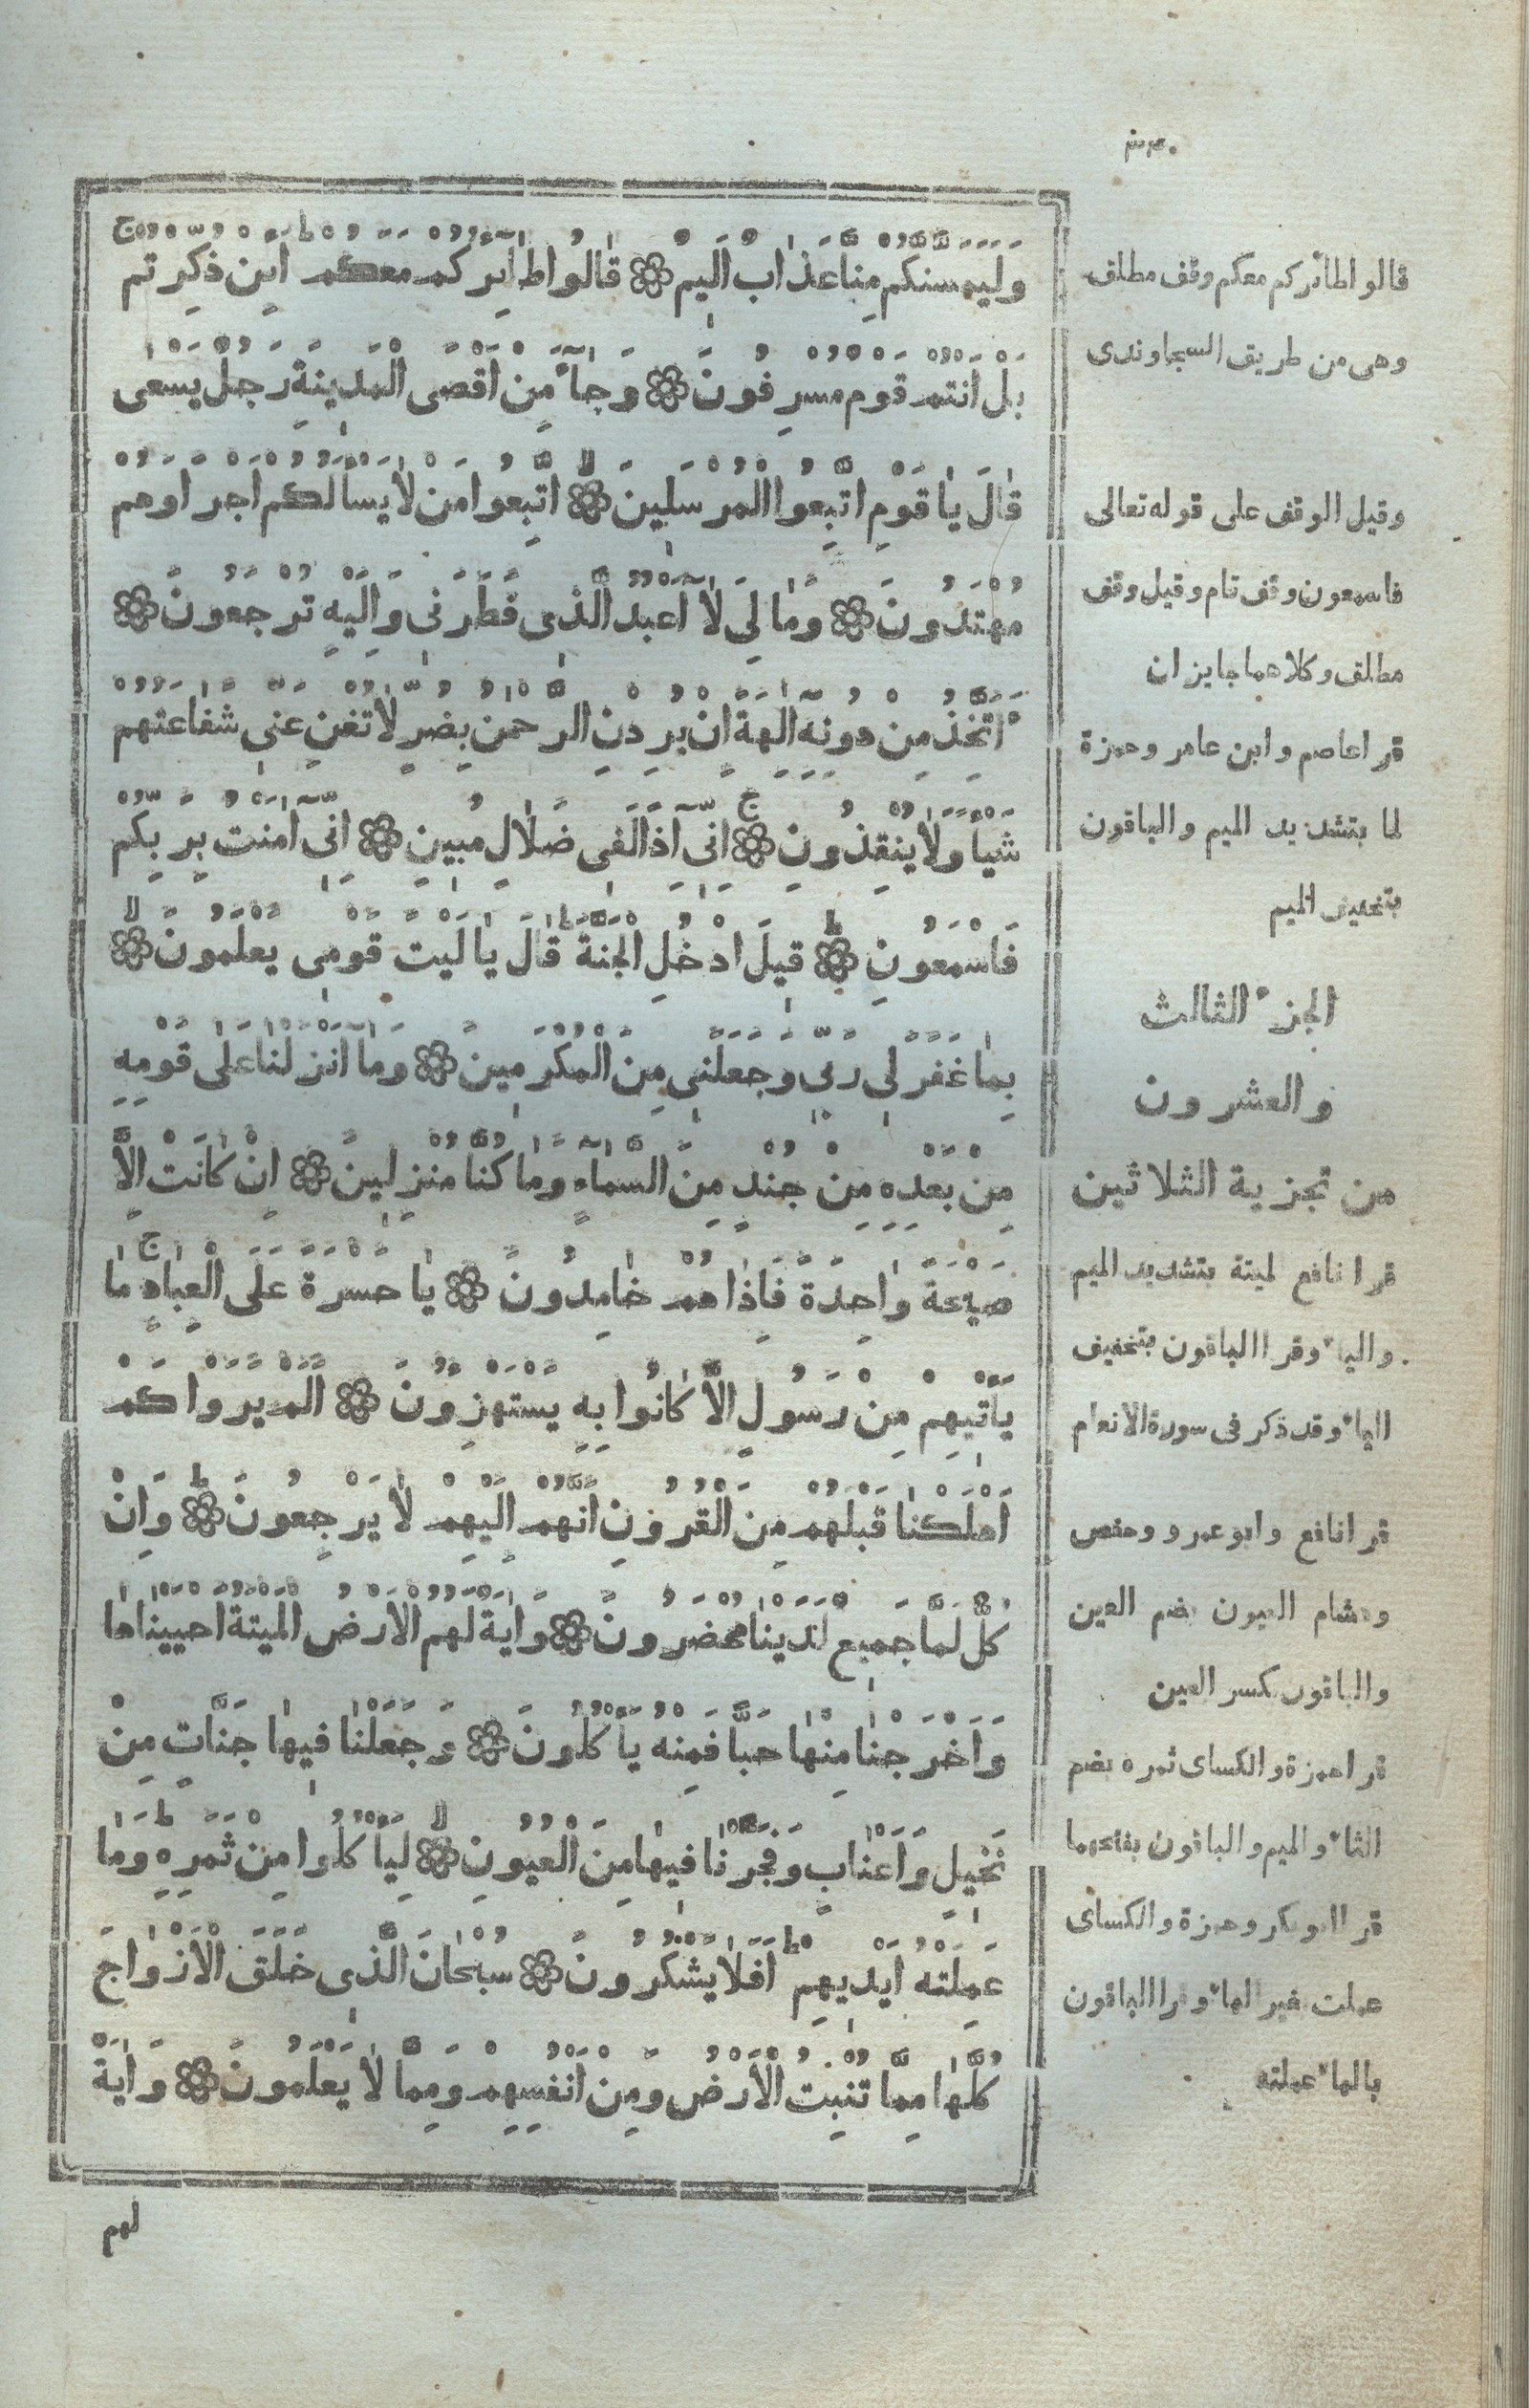 وَلَيَمَسَّنَّكُمْ مِنَّا عَذَابٌ اَلِيمٌ ۞ قَالُوا طَآئِرُكُمْ مَعَكُمْ ط اَئِنْ ذُكِّرْتُمْ ج
بَلْ اَنْتُمْ قَوْمٌ مُسْرِفُونَ ۞ وَجَآءَ مِنْ اَقْصَى الْمَدِينَةِ رَجُلٌ يَسْعٰى
قَالَ يَا قَوْمِ اتَّبِعُوا الْمُرْسَلِينَ ۞ لا اتَّبِعُوا مَنْ لَا يَسْأَلُكُمْ اَجْرًا وَهُمْ
مُهْتَدُونَ ۞ وَمَا لِيَ لَآ اَعْبُدُ الَّذِى فَطَرَنِى وَاِلَيْهِ تُرْجَعُونَ ۞
ءَاَتَّخِذُ مِنْ دُونِهِٓ اٰلِهَةً اِنْ يُرِدْنِ الرَّحْمٰنُ بِضُرٍّ لَا تُغْنِ عَنِّى شَفَاعَتُهُمْ
شَيْأً وَلَا يُنْقِذُونِ ۞ ج اِنِّىٓ اِذًا لَفِى ضَلَالٍ مُبِينٍ ۞ اِنِّىٓ اٰمَنْتُ بِرَبِّكُمْ
فَاسْمَعُونِ ۞ ط قِيلَ ادْخُلِ الْجَنَّةَ ط قَالَ يَا لَيْتَ قَوْمِى يَعْلَمُونَ ۞ لا
بِمَا غَفَرَ لِى رَبِّى وَجَعَلَنِى مِنَ الْمُكْرَمِينَ ۞ وَمَآ اَنْزَلْنَا عَلٰى قَوْمِهِ
مِنْ بَعْدِهِ مِنْ جُنْدٍ مِنَ السَّمَآءِ وَمَا كُنَّا مُنْزِلِينَ ۞ اِنْ كَانَتْ اِلَّا
صَيْحَةً وَاحِدَةً فَاِذَا هُمْ خَامِدُونَ ۞ يَا حَسْرَةً عَلَى الْعِبَادِ ج مَا
يَأْتِيهِمْ مِنْ رَسُولٍ اِلَّا كَانُوا بِهِ يَسْتَهْزِؤُنَ ۞ اَلَمْ يَرَوْا كَمْ
اَهْلَكْنَا قَبْلَهُمْ مِنَ الْقُرُونِ اَنَّهُمْ اِلَيْهِمْ لَا يَرْجِعُونَ ۞ ط وَاِنْ
كُلٌّ لَمَّا جَمِيعٌ لَدَيْنَا مُحْضَرُونَ ۞ وَاٰيَةٌ لَهُمُ الْاَرْضُ الْمَيْتَةُ اَحْيَيْنَاهَا
وَاَخْرَجْنَا مِنْهَا حَبًّا فَمِنْهُ يَأْكُلُونَ ۞ وَجَعَلْنَا فِيهَا جَنَّاتٍ مِنْ
نَخِيلٍ وَاَعْنَابٍ وَفَجَّرْنَا فِيهَا مِنَ الْعُيُونِ ۞ لا لِيَأْكُلُوا مِنْ ثَمَرِهِ ط وَمَا
عَمِلَتْهُ اَيْدِيهِمْ ط اَفَلَا يَشْكُرُونَ ۞ سُبْحَانَ الَّذِى خَلَقَ الْاَزْوَاجَ
كُلَّهَا مِمَّا تُنْبِتُ الْاَرْضُ وَمِنْ اَنْفُسِهِمْ وَمِمَّا لَا يَعْلَمُونَ ۞ وَاٰيَةٌ
لهم
قالوا طائركم معكم وقف مطلق
وهى من طريق السجاوندى
وقيل الوقف على قوله تعالى
فاسمعون وقف تام وقيل وقف
مطلق وكلاهما جايزان
قرا عاصم وابن عامر وحمزة
لما بتشديد الميم والباقون
بتخفيف الميم
الجزء الثالث
والعشرون
من تجزية الثلاثين
قرا نافع لميتة بتشديد الميم
والياء وقرا الباقون بتخفيف
الياء وقد ذكر فى سورة الانعام
قرا نافع وابو عمرو وحفص
وهشام العيون بضم العين
والباقون بكسر العين
قرا حمزة والكساى ثمره بضم
الثاء والميم والباقون بفتحهما
قرا ابو بكر وحمزة والكساى
عملت بغير الهاء وقرا الباقون
بالهاء عملته